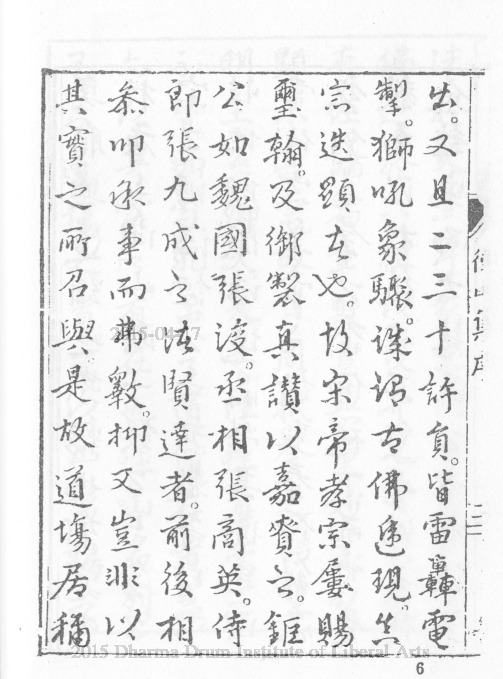 出。又且二三十許員。皆雷轟電
掣。獅吼象驟。誠謂古佛遞現。
宗迭顯者也。故宋帝孝宗屢賜
璽翰。及御製真讚以嘉賚之。鉅
公如魏國張浚。丞相張商英。侍
郎張九成之諸賢達者。前後相
參叩承事而弗斁。抑又豈非以
其實之所召與。是故道場居稱
集序
6
2015 Dharma Drum Institute of Liberal Arts